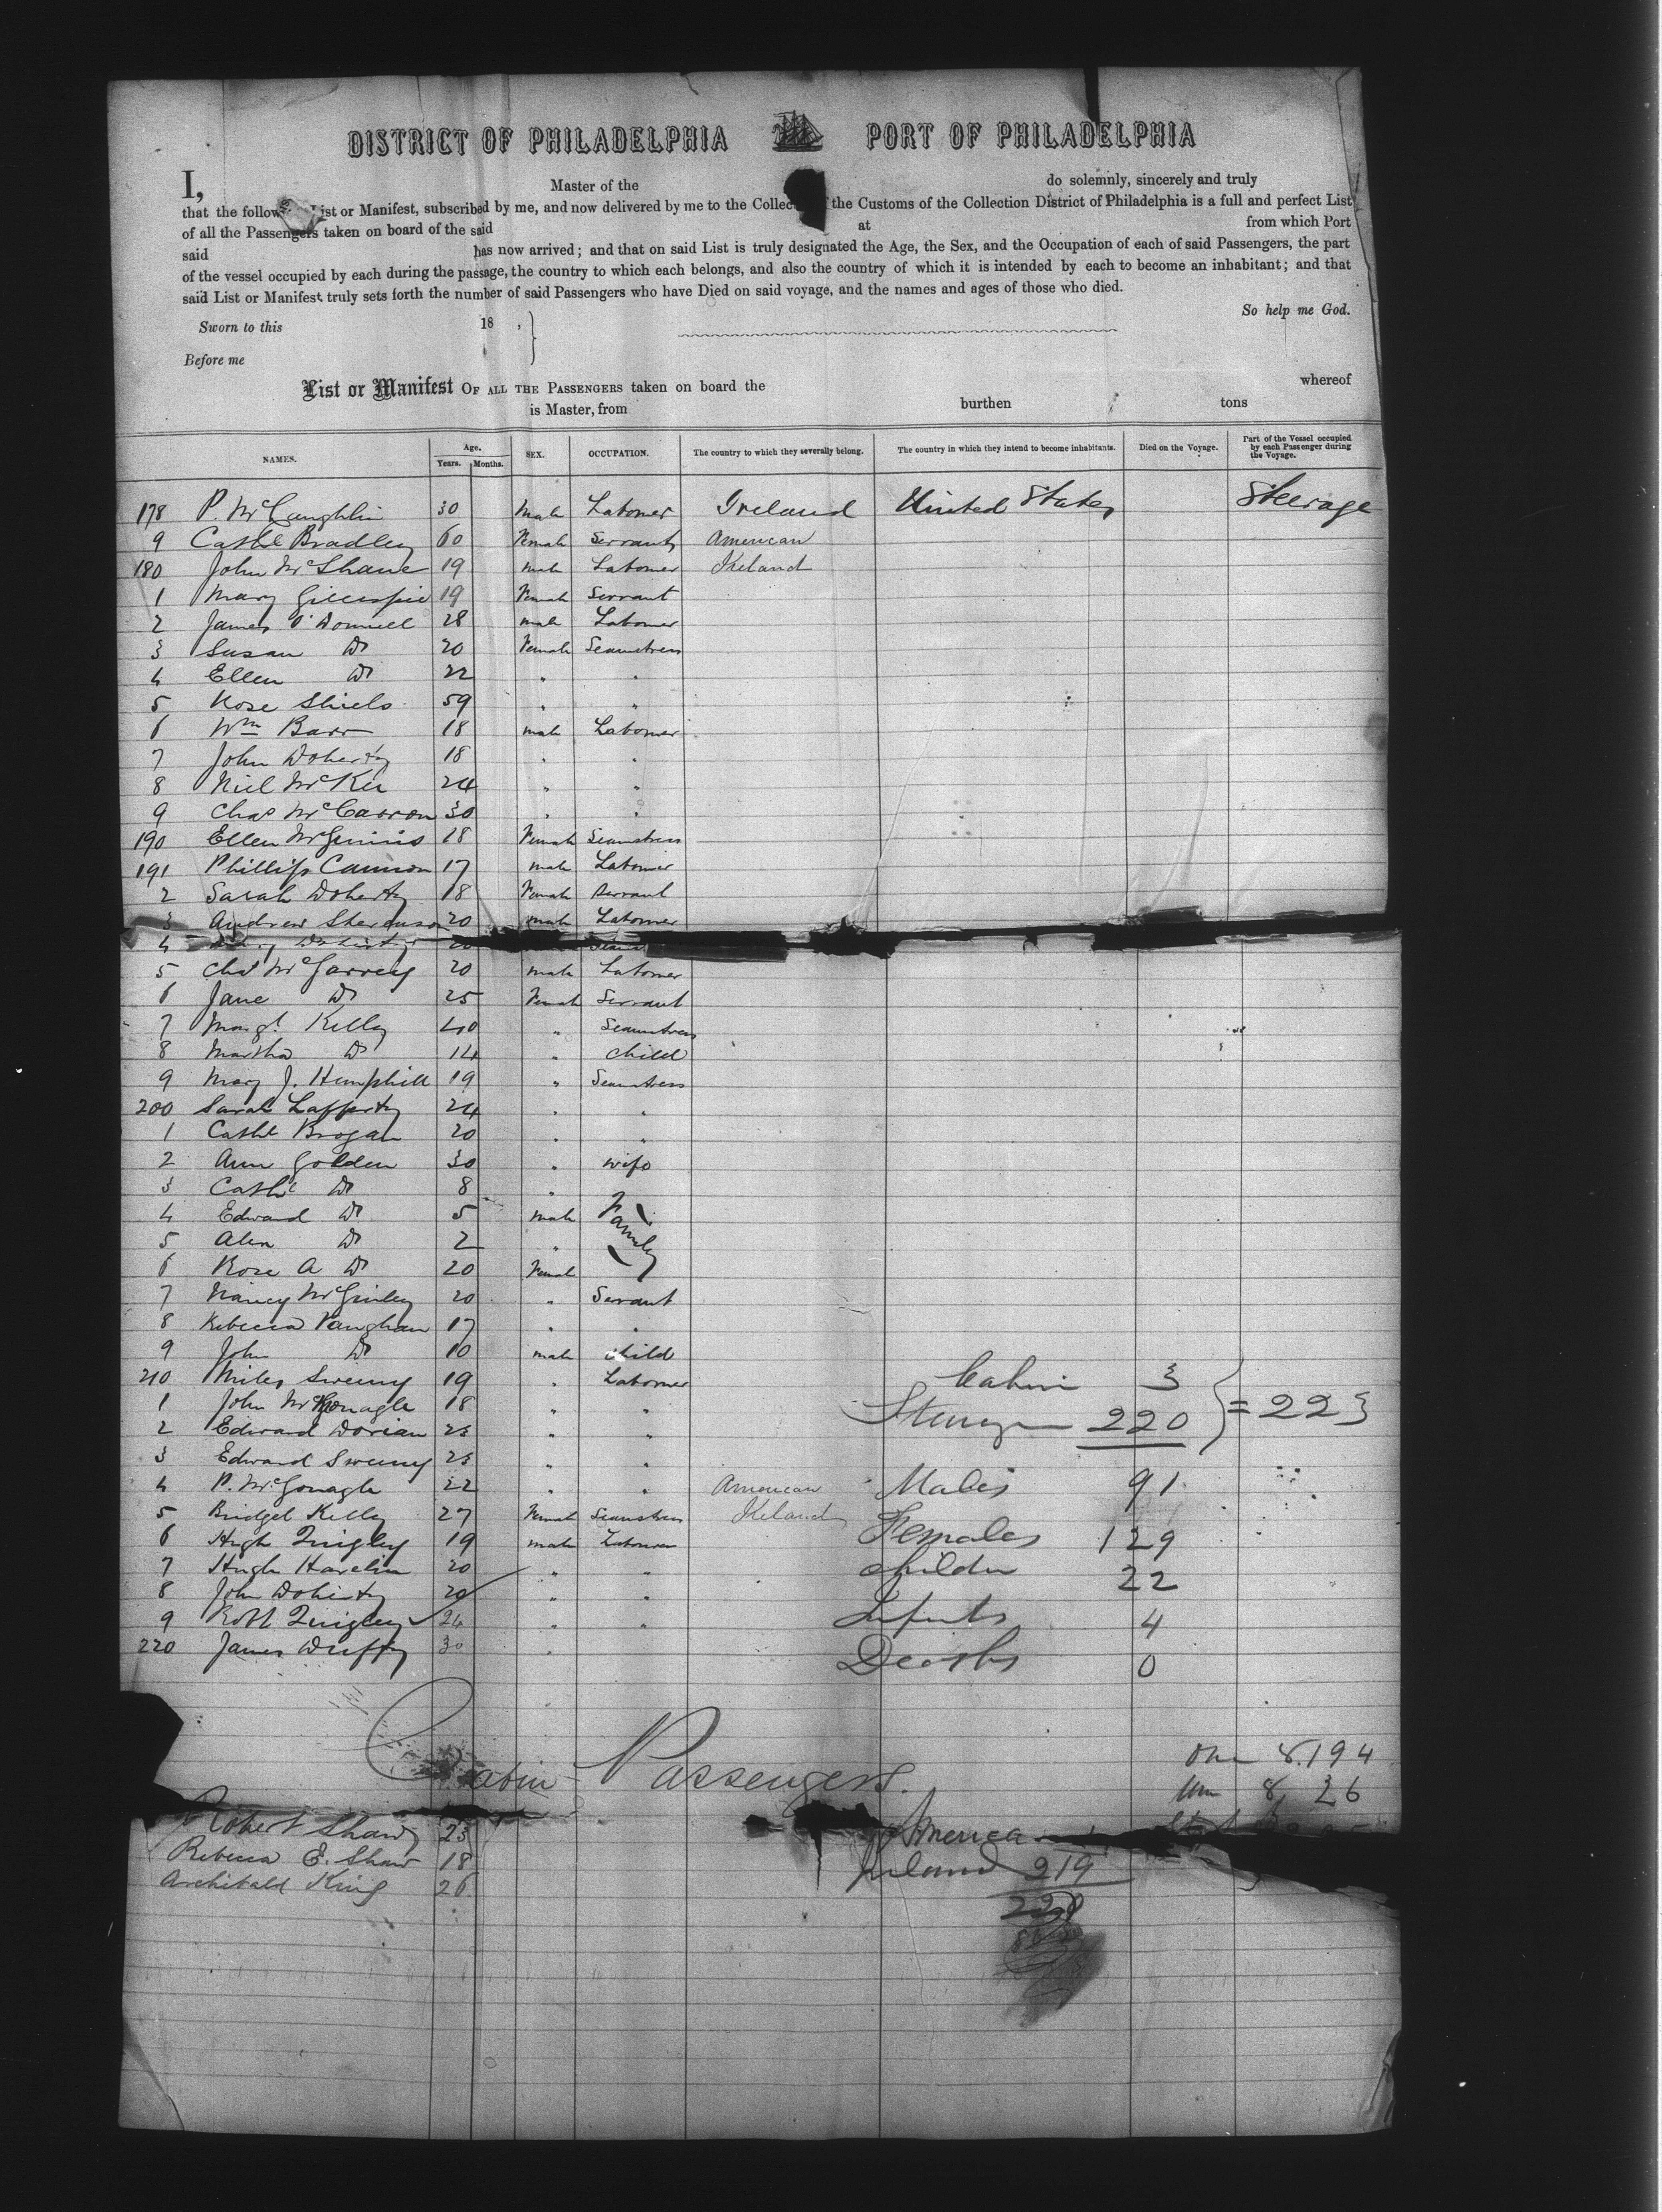 DISTRICT OF PHILADELPHIA PORT OF PHILADELPHIA
I, Master of the do solemnly, sincerely and truly
that the follow ist or Manifest, subscribed by me, and now delivered by me to the Collec the Customs of the Collection District of Philadelphia is a full and perfect List
of all the Passengers taken on board of the said at from which Port
said has now arrived; and that on said List is truly designated the Age, the Sex, and the Occupation of each of said Passengers, the part
of the vessel occupied by each during the passage, the country to which each belongs, and also the country of which it is intended by each to become an inhabitant; and that
said List or Manifest truly sets forth the number of said Passengers who have Died on said voyage, and the names and ages of those who died.
So help me God.
Sworn to this 18 ,
Before me
List or Manifest OF ALL THE PASSENGERS taken on board the whereof
is Master, from burthen tons
NAMES. Age. Years. Months. SEX. OCCUPATION. The country to which they severally belong. The country in which they intend to become inhabitants. Died on the Voyage. Part of the Vessel occupied by each Passenger during the Voyage.
178 P. McLaughlin 30 male Labomer Ireland United States Steerage
9 Cathe Bradley 60 Female Servant American
180 John McShane 19 male Labomer Ireland
1 Mary Gillespie 19 Female Servant
2 James O'Donnell 28 male Labomer
3 Susan Do 20 Female Seamstress
4 Ellen Do 22 " "
5 Rose Shiels 59 " "
6 Wm Barr 18 male Labomer
7 John Doherty 18 " "
8 Niel McKee 24 " "
9 Chas McCarron 30 " "
190 Ellen McGinnis 18 Female Seamstress
191 Phillip Cannon 17 male Labomer
2 Sarah Doherty 18 Female Servant
3 Andrew 20 male Labomer
4 Doherty 20
5 Chas McGarvey 20 male Labomer
6 Jane Do 25 Female Servant
7 Margt Kelly 40 " Seamstress
8 Martha Do 14 " child
9 Mary J. Hemphill 19 " Seamstress
200 Sarah Lafferty 24 " "
1 Cathe Brogan 20 " "
2 Ann Golden 30 " wife
3 Cathe Do 8 "
4 Edward Do 5 male Family
5 Alex Do 2 "
6 Rose A Do 20 Female
7 Nancy McGinley 20 " Servant
8 Rebecca Vaughan 17 " "
9 John Do 10 male child
210 Miles Sweeny 19 " Labomer Cabin 3
1 John McGonagle 18 " " Steerage 220 = 223
2 Edward Dorian 23 " "
3 Edward Sweeny 23 " "
4 P. McGonagle 22 " " American Males 91
5 Bridget Kelly 27 Female Seamstress Ireland Females 129
6 Hugh Quigley 19 male Labomer
7 Hugh Havelin 20 " " Childn 22
8 John Doherty 20 " "
9 Robt Quigley 24 " " Infants 4
220 James Duffy 30 " Deaths 0
Cabin Passengers.
8.194
8 26
Robert Shaw 23 America
Rebecca E. Shaw 18 Ireland 219
Archibald King 26